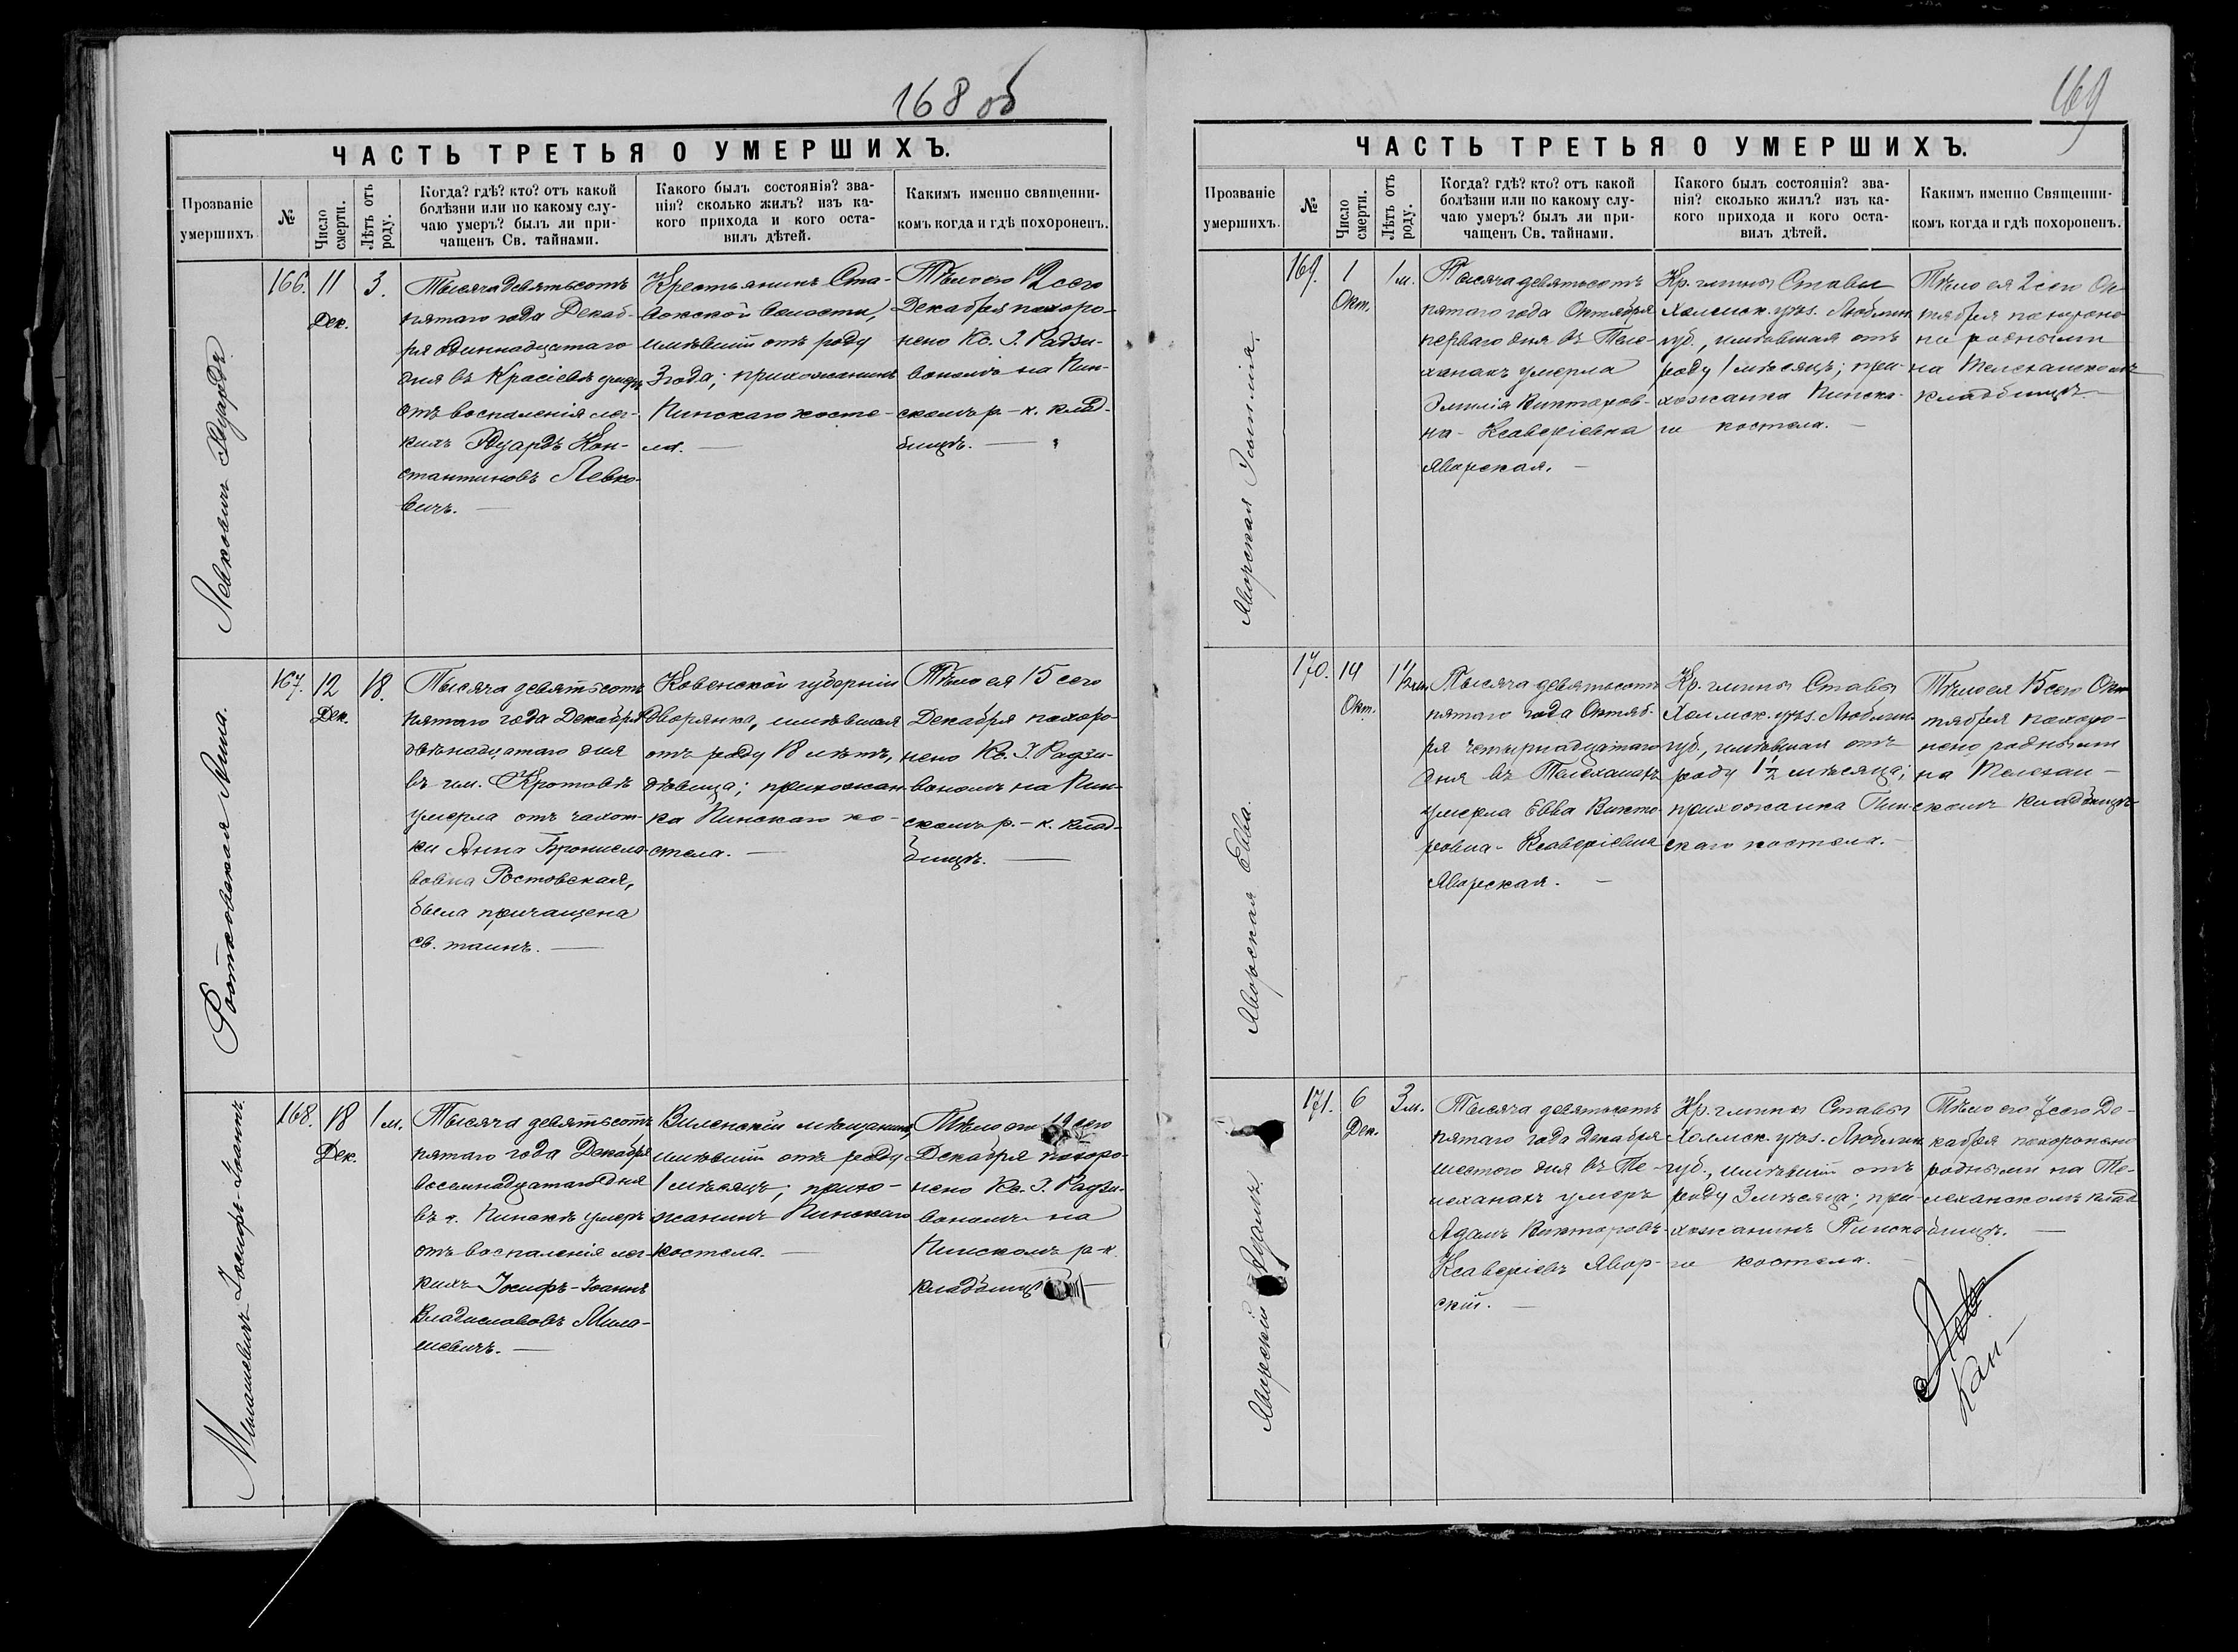 168 об
ЧАСТЬ ТРЕТЬЯ О УМЕРШИХЪ.
Прозваніе умершихъ.
№
Число смерти.
Лѣтъ отъ роду.
Когда? гдѣ? кто? отъ какой
болѣзни или по какому слу-
чаю умеръ? былъ ли при-
чащенъ Св. тайнами.
Какого былъ состоянія? зва-
нія? сколько жилъ? изъ ка-
кого прихода и кого оста-
вилъ дѣтей.
Какимъ именно священни-
комъ когда и гдѣ похороненъ.
Левковичъ Эдуардъ
166.
11
Дек.
3.
Тысяча девятьсотъ
пятаго года Декаб-
ря одиннадцатаго
дня въ Красіевѣ умеръ
отъ воспаленія лег-
кихъ Эдуардъ Кон-
стантиновъ Левко-
вичъ. —
Крестьянинъ Ста-
вокской волости,
имѣвшій отъ роду
3 года; прихожанинъ
Пинскаго косте-
ла. —
Тѣло его 12 сего
Декабря похоро-
нено Кс. І. Радзи-
вономъ на Пин-
скомъ р.-к. клад-
бищѣ. —
Ростковская Анна.
167.
12
Дек.
18.
Тысяча девятьсотъ
пятаго года Декабря
двѣнадцатаго дня
въ им. Кротовѣ
умерла отъ чахот-
ки Анна Брониславо-
вовна Ростовская,
была причащена
св. таинъ. —
Ковенской губерніи
дворянка, имѣвшая
отъ роду 18 лѣтъ,
дѣвица; прихожан-
ка Пинскаго ко-
стела. —
Тѣло ея 15 сего
Декабря похоро-
нено Кс. І. Радзи-
вономъ на Пин-
скомъ р.-к. клад-
бищѣ. —
Милашевичъ Іосифъ-Іоаннъ.
168.
18
Дек.
1 м.
Тысяча девятьсотъ
пятаго года Декабря
восемнадцатаго дня
въ г. Пинскѣ умеръ
отъ воспаленія лег-
кихъ Іосифъ-Іоаннъ
Владиславовъ Мила-
шевичъ. —
Виленскій мѣщанинъ,
имѣвшій отъ роду
1 мѣсяцъ; прихо-
жанинъ Пинскаго
костела. —
Тѣло его 19 сего
Декабря похоро-
нено Кс. І. Радзи-
вономъ на
Пинскомъ р-к.
кладбищѣ
169
ЧАСТЬ ТРЕТЬЯ О УМЕРШИХЪ.
Прозваніе умершихъ.
№
Число смерти.
Лѣтъ отъ роду.
Когда? гдѣ? кто? отъ какой
болѣзни или по какому слу-
чаю умеръ? былъ ли при-
чащенъ Св. тайнами.
Какого былъ состоянія? зва-
нія? сколько жилъ? изъ ка-
кого прихода и кого оста-
вилъ дѣтей.
Какимъ именно Священни-
комъ когда и гдѣ похороненъ.
Яворская Эмилія.
169.
1
Окт.
1 м.
Тысяча девятьсотъ
пятаго года Октября
перваго дня въ Теле-
ханахъ умерла
Эмилія Викторов-
на-Ксаверіевна
Яворская. —
Кр. гмины Ставы
Холмск. уѣз. Люблин.
губ., имѣвшая отъ
роду 1 мѣсяцъ; при-
хожанка Пинска-
го костела. —
Тѣло ея 2 сего Ок-
тября похороне-
но родными
на Телеханскомъ
кладбищѣ —
Яворская Евва.
170.
14
Окт.
1½ м.
Тысяча девятьсотъ
пятаго года Октяб-
ря четырнадцатаго
дня въ Телеханахъ
умерла Евва Викто-
ровна-Ксаверіевна
Яворская. —
Кр. гмины Ставы
Холмск. уѣз. Люблин.
губ., имѣвшая отъ
роду 1½ мѣсяца;
прихожанка Пин-
скаго костела. —
Тѣло ея 15 сего Ок-
тября похоро-
нено родными
на Телехан-
скомъ кладбищѣ
Яворскій Адамъ.
171.
6
Дек.
3 м.
Тысяча девятьсотъ
пятаго года Декабря
шестого дня въ Те-
леханахъ умеръ
Адамъ Викторовъ-
Ксаверіевъ Явор-
скій. —
Кр. гмины Ставы
Холмск. уѣз. Люблин.
губ., имѣвшій отъ
роду 3 мѣсяца; при-
хожанинъ Пинска-
го костела. —
Тѣло его 7 сего Де-
кабря похоронено
родными на Те-
леханскомъ клад-
бищѣ. —